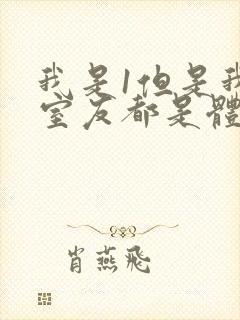 我是1但是我
室友都是體
肖燕飛